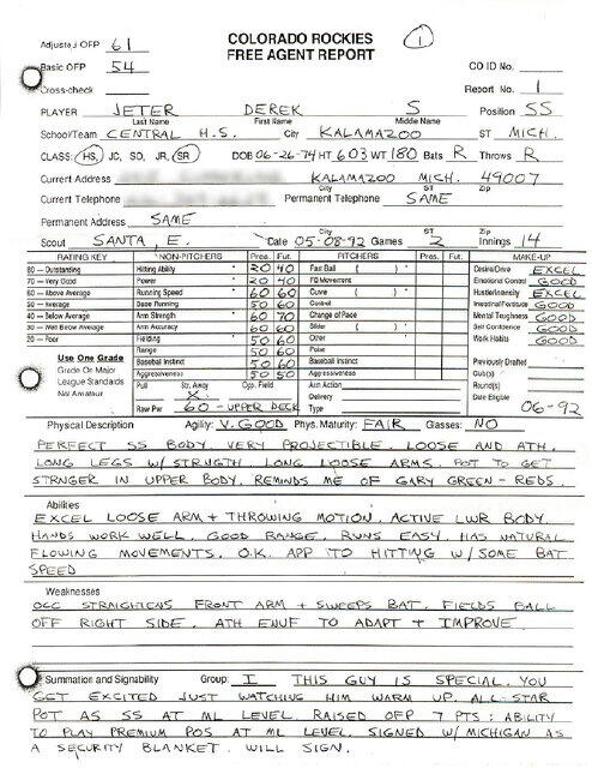 COLORADO ROCKIES
FREE AGENT REPORT
1
Adjusted OFP 61
Basic OFP 54
Cross-check
CO ID No.
Report No. 1
PLAYER JETER DEREK S Position SS
Last Name First Name Middle Name
School/Team CENTRAL H.S. City KALAMAZOO ST MICH.
CLASS: HS, JC, SO, JR, SR DOB 06-26-74 HT 603 WT 180 Bats R Throws R
Current Address KALAMAZOO MICH. 49007
City ST Zip
Current Telephone Permanent Telephone SAME
Permanent Address SAME
City ST Zip
Scout SANTA, E. Date 05-08-92 Games 2 Innings 14
RATING KEY NON-PITCHERS Pres. Fut. PITCHERS Pres. Fut. MAKE-UP
80 — Outstanding Hitting Ability * 20 40 Fast Ball ( ) * Desire/Drive EXCEL
70 — Very Good Power * 20 40 FB Movement Emotional Control GOOD
60 — Above Average Running Speed * 60 60 Curve ( ) * Hustle/Intensity EXCEL
50 — Average Base Running 50 60 Control * Intestinal Fortitude GOOD
40 — Below Average Arm Strength * 60 70 Change of Pace * Mental Toughness GOOD
30 — Well Below Average Arm Accuracy 60 60 Slider ( ) * Self Confidence GOOD
20 — Poor Fielding * 50 60 Other * Work Habits GOOD
Range 50 60 Poise
Use One Grade Baseball Instinct 50 60 Baseball Instinct Previously Drafted
Grade On Major Aggressiveness 50 50 Aggressiveness Club(s)
League Standards Pull Str. Away Opp. Field Arm Action Round(s)
Not Amateur X Delivery Date Eligible
Raw Pwr 60 - UPPER DECK Type 06-92
Physical Description Agility: V. GOOD Phys. Maturity: FAIR Glasses: NO
PERFECT SS BODY. VERY PROJECTIBLE. LOOSE AND ATH.
LONG LEGS W/ STRNGTH. LONG LOOSE ARMS. POT TO GET
STRNGER IN UPPER BODY. REMINDS ME OF GARY GREEN - REDS.
Abilities
EXCEL LOOSE ARM + THROWING MOTION. ACTIVE LWR BODY.
HANDS WORK WELL. GOOD RANGE. RUNS EASY. HAS NATURAL
FLOWING MOVEMENTS. O.K. APP TO HITTING W/ SOME BAT
SPEED
Weaknesses
OCC STRAIGHTENS FRONT ARM + SWEEPS BAT. FIELDS BALL
OFF RIGHT SIDE. ATH ENUF TO ADAPT + IMPROVE.
Summation and Signability Group: I THIS GUY IS SPECIAL. YOU
GET EXCITED JUST WATCHING HIM WARM UP. ALL-STAR
POT AS SS AT ML LEVEL. RAISED OFP 7 PTS: ABILITY
TO PLAY PREMIUM POS AT ML LEVEL. SIGNED W/ MICHIGAN AS
A SECURITY BLANKET. WILL SIGN.